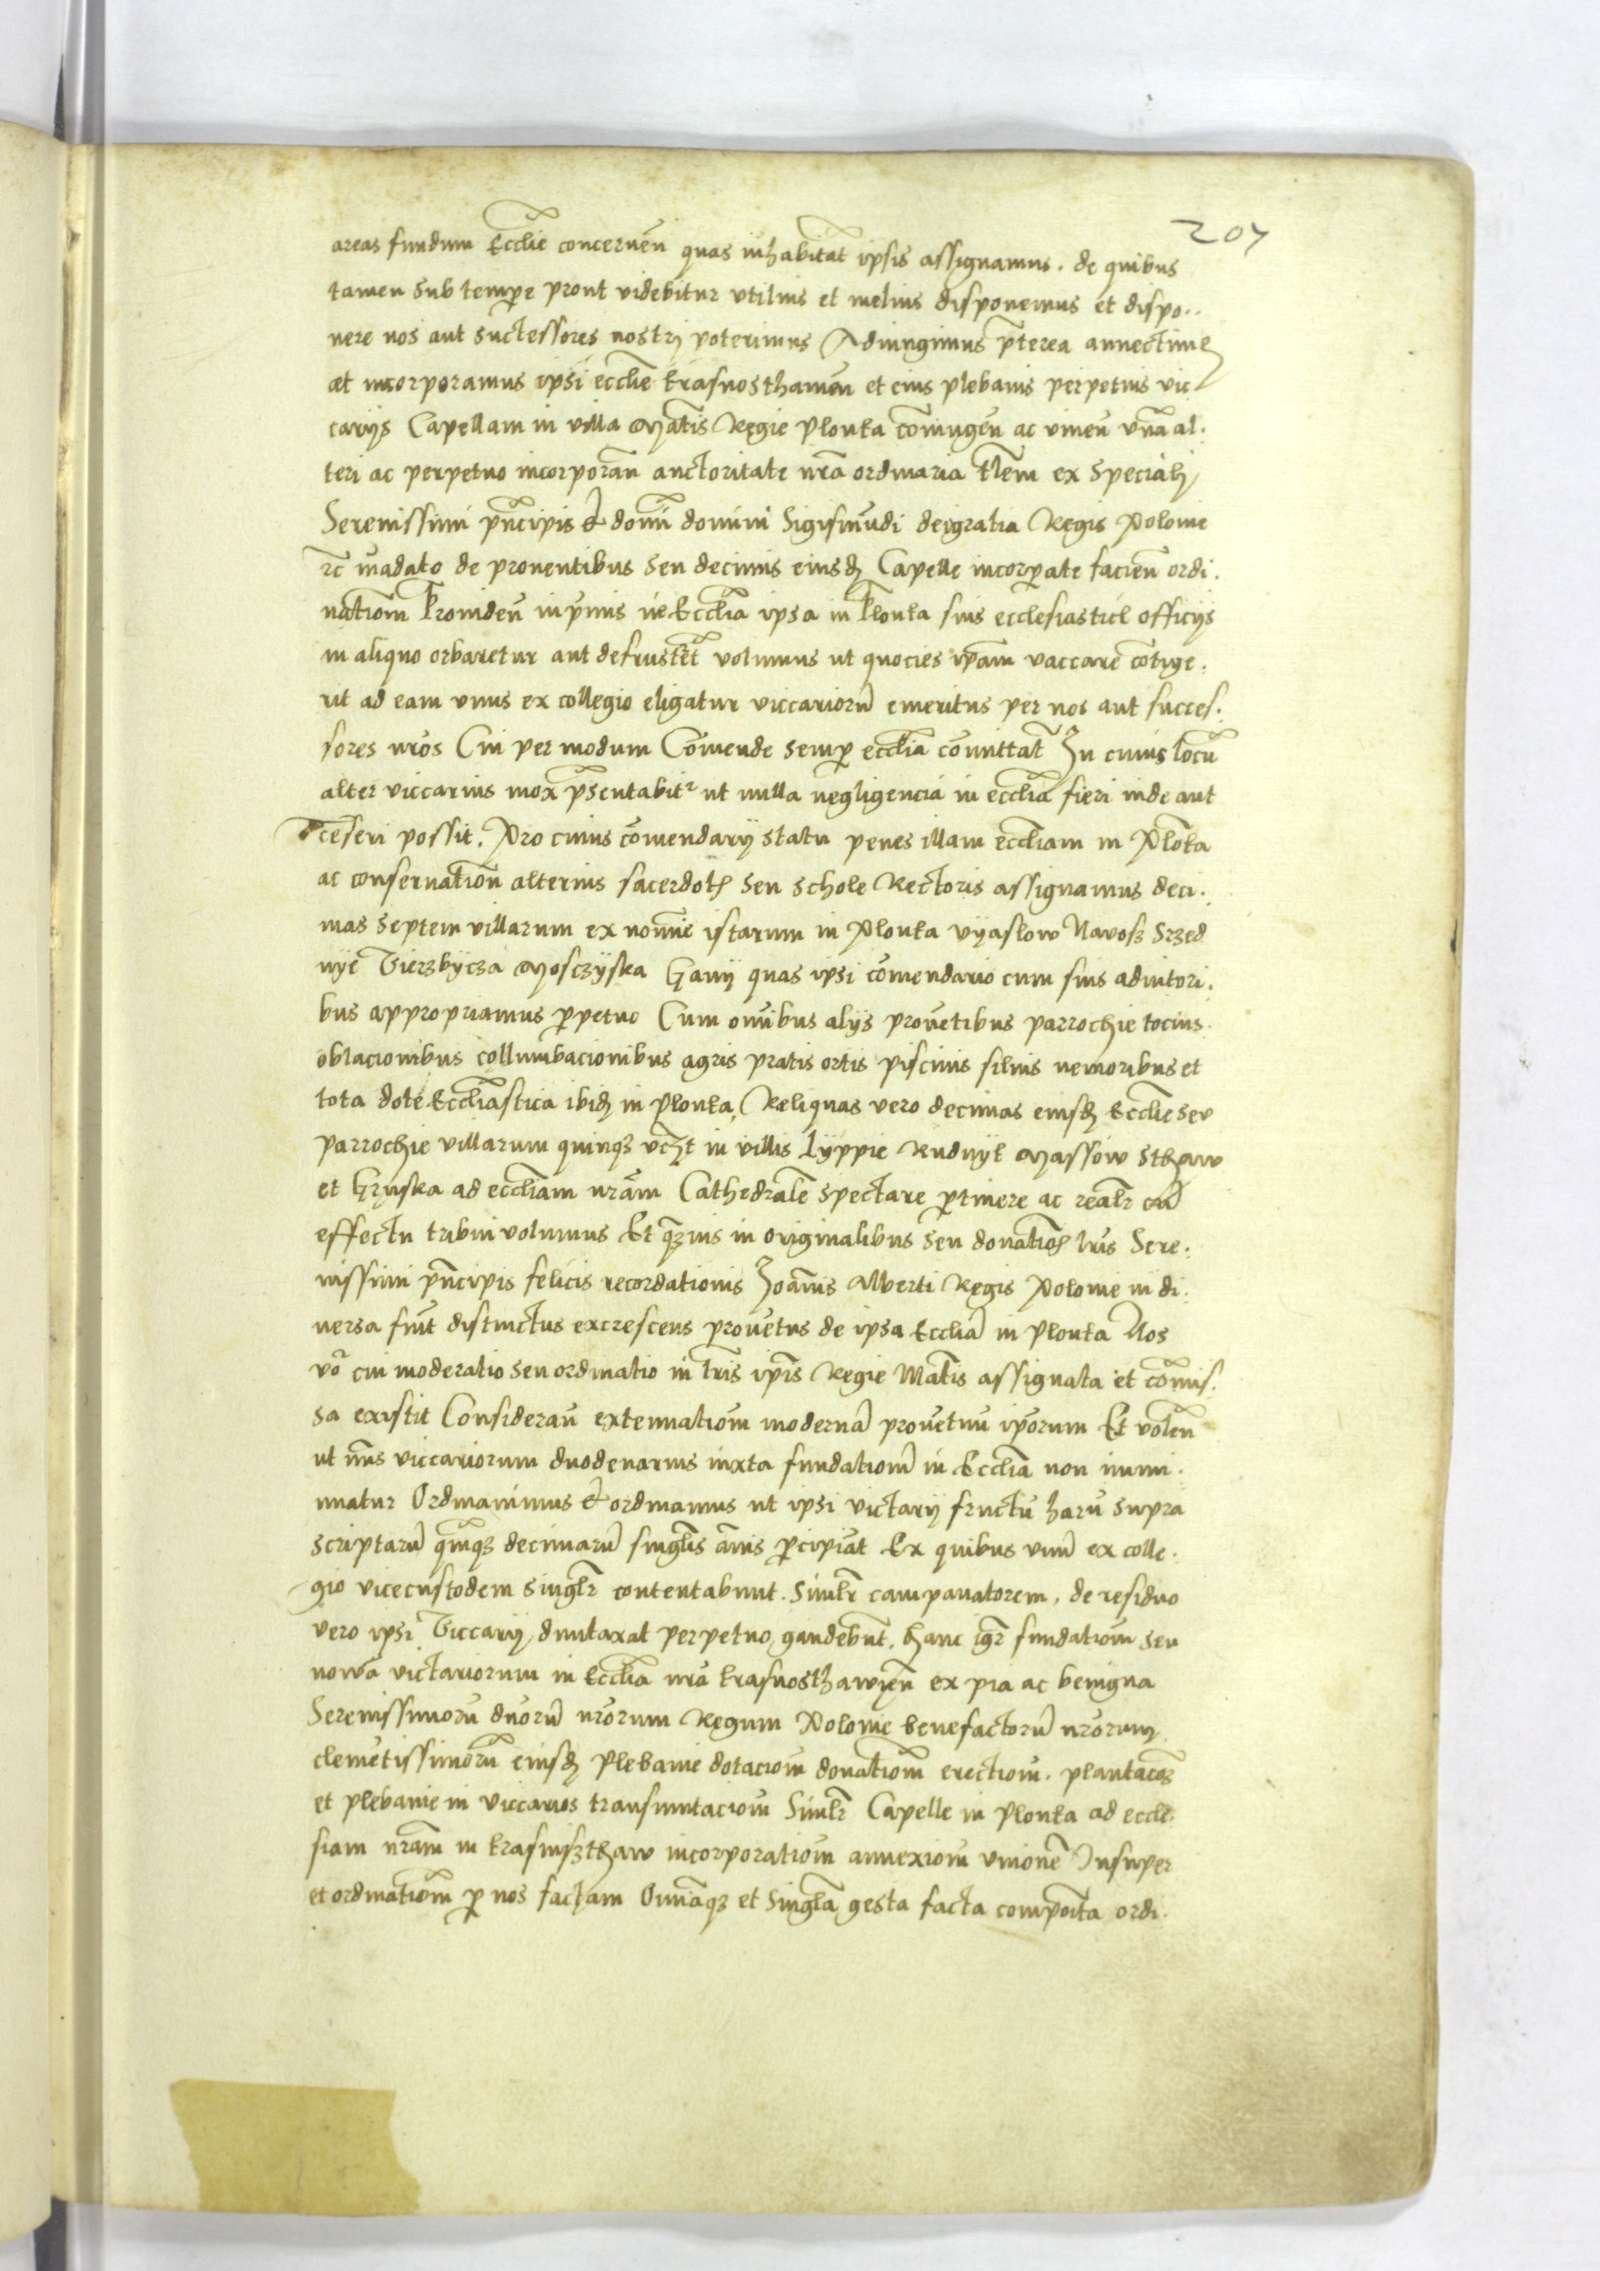 207
areas fundum Ecclie concernen̄ quas inhabitat̄ ipsis assignamus. de quibus
tamen sub tempe prout videbitur utilius et melius disponemus et dispo..
nere nos aut suctessores nostrj poterimus Adiungimus p̄terea annectimꝫ
et incorporamus ipsi ecclīe krasnosthamen̄ et eius plebanis perpetuis vic
carijs Capellam in villa Matīs Regie Plonka cōniungen̄ ac vnien̄ vnā al.
teri ac perpetuo incorporan̄ auctoritate nrā ordinaria tlēm ex specialj
Serenissimi pn̄cipis Et domī domini Sigismūdi deigratia Regis Polonie
rc̄ mādato de prouentibus seu decimis eiusdꝫ Capelle incorpate facien̄ ordi.
natiōm Prouiden̄ inpimis ne Ecclīa ipsa in Plonka suis ecclesiasticꝭ officijs
in aliquo orbaretur aut defrustret̄ volumus ut quocies ipām vaccare cōtige.
rit ad eam vnus ex collegio eligatur viccariorū emeritus per nos aut succes.
sores nrōs Cui per modum Cōmende semp ecclīa cōmittat̄ In cuius locū
alter viccarius mox pn̄sentabitr ut nulla negligencia in ecclīa fieri inde aut
censeri possit. Pro cuius cōmendarij statu penes illam eccliam in Plōka
ac conseruatiōn alterius sacerdotꝭ seu schole Rectoris assignamus deci.
mas septem villarum ex noīe istarum in Plonka vijaslow Navosz Srzed
nye Vierzbycza Mosczyska Gaij quas ipsi cōmendario cum suis adiutori.
bus appropriamus ppetuo Cum omībus alijs prouētibus parrochie tocius.
oblacionibus collumbacionibus agris pratis ortis piscinis siluis nemoribus et
tota dote Ecclīastica ibidꝫ in plonka, Reliquas vero decimas eiusdꝫ Ecclie seu
parrochie villarum quinqꝫ vcꝫt in villis Lyppie Rudnyk Massow Sthaw
et Gruska ad eccliam nrām Cathedralē spectare ptinere ac realr̄ cū
effectu tribui volumus Et qꝫuis in originalibus seu donatioꝭ lrīs Sere.
nissimi pn̄cipis felicis recordationis Joānis Alberti Regis Polonie in di.
uersa sint distinctus excrescens prouētus de ipsa Ecclīa in plonka Nos
vō cui moderatio seu ordinatio in lrīs ipīs Regie Matīs assignata et cōmis.
sa existit Consideran̄ extenuatiōm modernā prouētuū ipōrum Et volen̄
ut nūs viccariorum duodenarius iuxta fundationē in Ecclīa non immi.
nuatur Ordinauimus Et ordinamus ut ipsi victarij fructū harū supra
scriptarū quīqꝫ decimarū singlīs ānis pcipiāt Ex quibus vnū ex colle.
gio vicecustodem singlr̄ contentabunt. Similr̄ campanatorem, de residuo
vero ipsi Viccarij duntaxat perpetuo gaudebūt, hanc igr̄ fundatiōm seu
nowā victariorum in Ecclīa nrā krasnosthawien̄ ex pia ac benigna
Serenissimorū dnorū nrōrum Regum Polonie benefactorū nrōrum
clemētissimorū eiusdꝫ Plebanie dotaciōm donatiōm erectiōm. plantacōꝫ
et plebanie in viccarios transmutaciōm Similr̄ Capelle in Plonka ad eccle.
siam nrām in krasniszthaw incorporatiōm annexiōm vnionē Insuper
et ordinatiōm p nos factam Omniāqꝫ et Singlā gesta facta compoīta ordi.